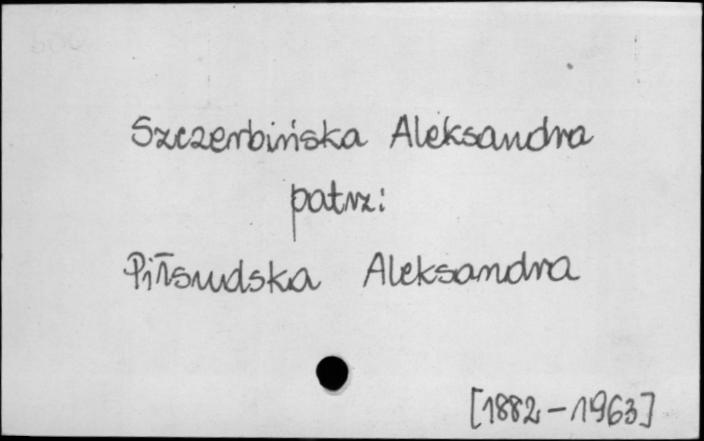 Szczerbińska Aleksandra
patrz:
Piłsudska Aleksandra
[1882-1963]